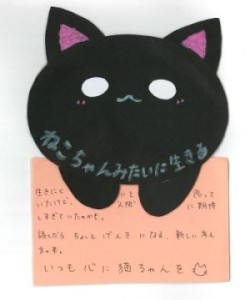 ねこちゃんみたいに生きる
生きにく と 思って
いたけど、 人間 に期待
しすぎていたのかも。
読んだら ちょっと げんき になる、新しい考え
方の本。
いつも心に猫ちゃんを